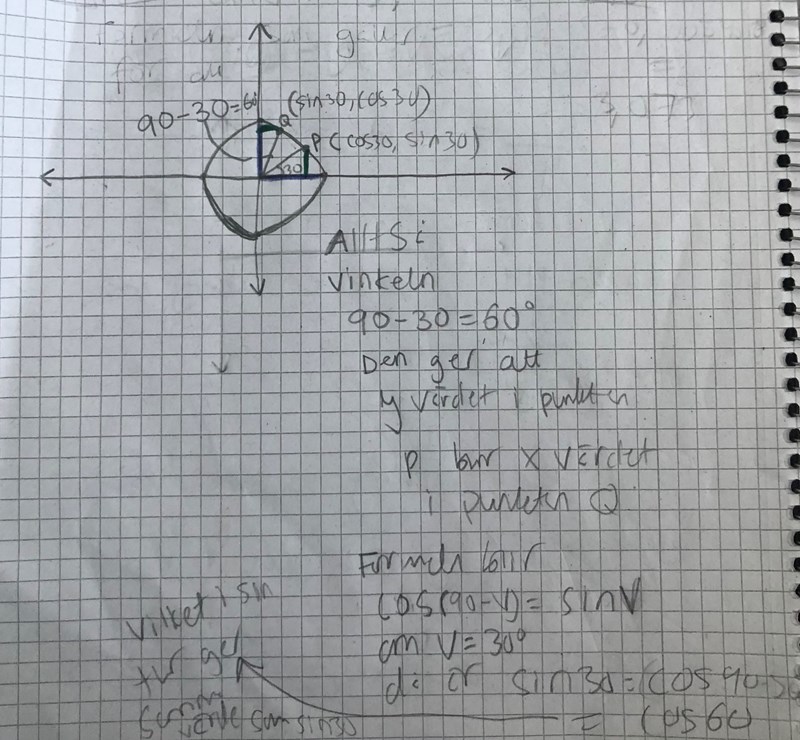 90-30=60 (sin30, cos30)
Q
P (cos30, sin30)
30
Alltså
vinkeln
90-30=60°
Den ger att
y värdet i punkten
p blir x värdet
i punkten Q
Formeln blir
cos(90-V)= sinV
om V=30°
då är sin30=cos90-30
= cos60
Vilket i sin
tur ger
samma
värde som sin30